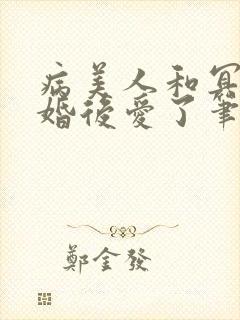 病美人和冥
婚後愛了筆
鄭金發